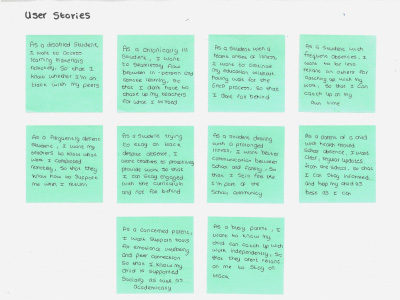 User Stories
As a disabled student,
I want to access
learning materials
remotely, so that I
know whether I'm on
track with my peers
As a chronically ill
student, I want
to seamlessly flow
between in-person and
remote learning, so
that I don't have to
chase up my teachers
for what I missed
As a student with a
recent onset of illness,
I want to continue
my education without
having wait for the
EHCP process, so that
I don't fall behind
As a student with
frequent absences, I
want to be less
reliant on others for
catching up with my
work, so that I can
catch up in my
own time
As a frequently absent
student, I want my
teachers to know what
work I completed
remotely, so that they
know how to support
me when I return
As a student trying
to stay on track
despite absence, I
want teachers to proactively
provide work so that
I can stay engaged
with the curriculum
and not fall behind
As a student dealing
with a prolonged
illness, I want better
communication between
school and family, so
that I still feel like
I'm part of the
school community
As a parent of a child
with health related
school absence, I want
clear, regular updates
from the school, so that
I can stay informed
and help my child as
best as I can
As a concerned parent,
I want support tools
for emotional wellbeing
and peer connection
so that I know my
child is supported
socially as well as
academically
As a busy parent, I
want to know my
child can catch up with
work independently, so
that they don't reliant
on me to stay on
track